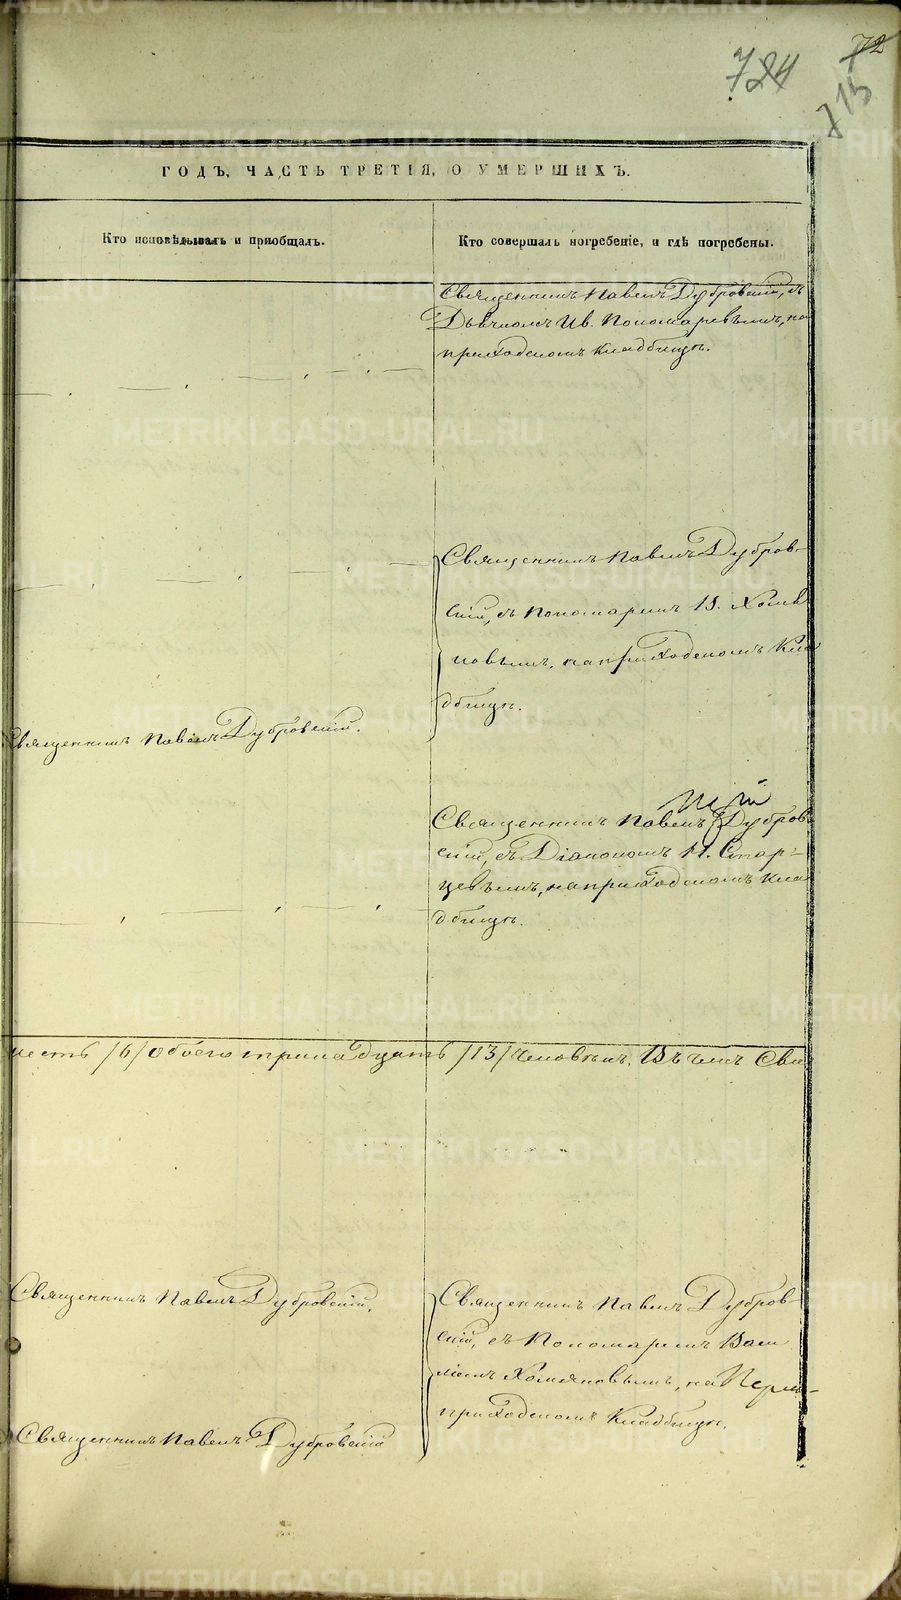 72
724
713
ГОДЪ, ЧАСТЬ ТРЕТІЯ, О УМЕРШИХЪ.
Кто исповѣдывалъ и пріобщалъ.
Кто совершалъ погребеніе, и гдѣ погребены.
Священникъ Павелъ Дубровскій, съ
Дьячкомъ Ив. Пономаревымъ, на
приходскомъ кладбищѣ.
Священникъ Павелъ Дубров-
скій, съ Пономаремъ В. Хомя
ковымъ, на приходскомъ Кла
дбищѣ.
Священникъ Павелъ Дубровскій.
Священникъ Павелъ Дубров
скій, съ Діакономъ Стар-
цевымъ, на приходскомъ кла
дбищѣ.
шесть /6/ обоего тринадцать /13/ человѣкъ. Въ чемъ Свя
Священникъ Павелъ Дубровскій.
Священникъ Павелъ Дубров-
скій, съ Пономаремъ Васи
ліемъ Хомяковымъ, на
приходскомъ Кладбищѣ.
Священникъ Павелъ Дубровскій
METRIKI.GASO-URAL.RU